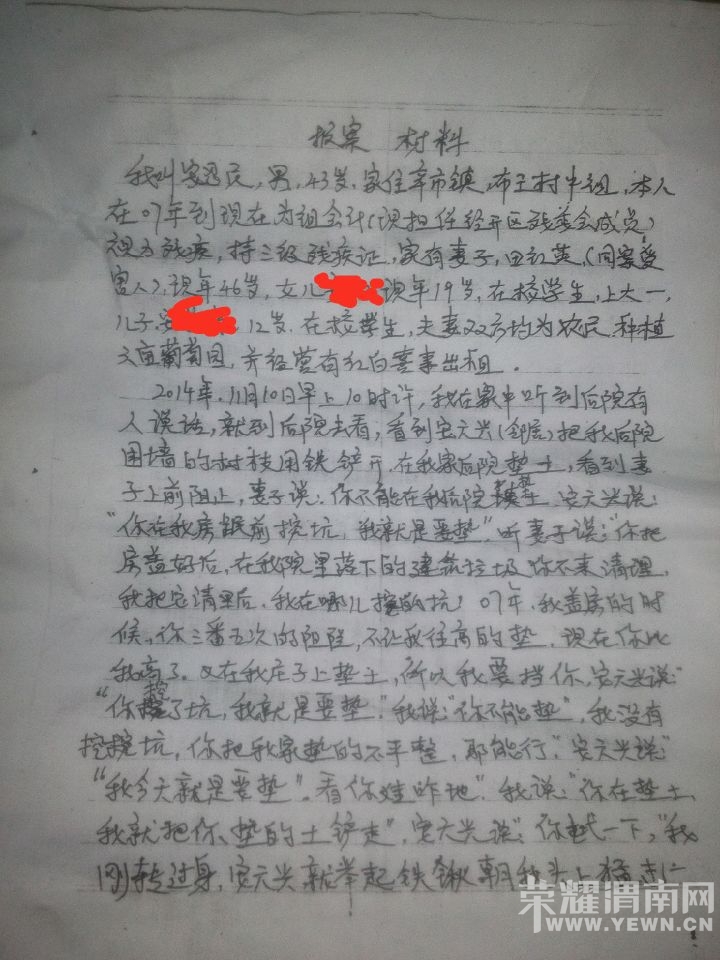 报案 材料
我叫安 民，男，43岁，家住辛市镇 布王村 组，本人
在07年到现在为组会计（现担任经开区残委会成员）
视力残疾，持三级残疾证，家有妻子，田红英，（同案受
害人），现年46岁，女儿 现年19岁，在校学生，上大一，
儿子安 12岁，在校学生，夫妻双方均为农民，种植
亩葡萄园，并经营有红白喜事出租。
2014年，11月10日早上10时许，我在家中听到后院有
人说话，就到后院去看，看到安元兴（邻居）把我后院
围墙的树枝用铁铲开，在我家后院垫土，看到妻
子上前阻止，妻子说：你不能在我后院 垫土，安元兴说：
“你在我房 前挖坑，我就是要垫”，听妻子说：“你把
房盖好后，在我院里落下的建筑垃圾你不来清理，
我把它清里后，我在哪儿挖的坑？07年，我盖房的时
候，你三番五次的阻 ，不让我往高的垫，现在你比
我高了，又在我庄子上垫土，所以我要挡你，安元兴说：
“你挖了坑，我就是要垫”，我说：“你不能垫”，我没有
挖坑，你把我家垫的不平整，那能行”，安元兴说：
“我今天就是要垫”，看你娃咋地”，我说：“你在垫土，
我就把你、垫的土铲走”，安元兴说：你试一下，”我
刚转过身，安元兴就举起铁锹朝我头上猛
荣耀渭南网
WWW.YEWN.CN